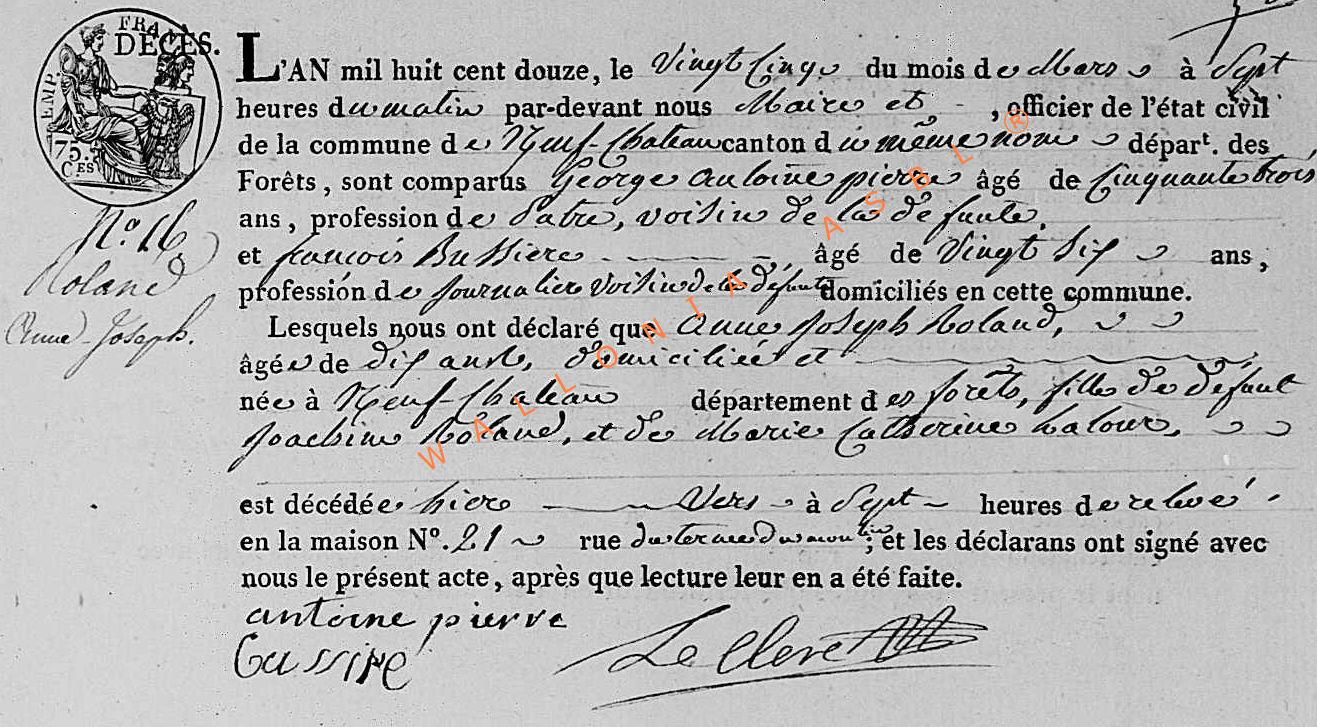 FRA
DÉCÈS.
EMP.
75.
CES
L'AN mil huit cent douze, le Vingt Cinq du mois de Mars à Sept
heures du matin par-devant nous Maire et , officier de l'état civil
de la commune de Neuf-Chateau canton du même nom départ. des
Forêts, sont comparus George antoine pierre âgé de Cinquante trois
ans, profession de Patre, voisin de la défunte,
N.o 16
Roland
Anne Joseph.
et françois Bussiere, âgé de Vingt Six ans,
profession de Journalier voisin de la défunte domiciliés en cette commune.
Lesquels nous ont déclaré que Anne Joseph Roland,
âgée de dix ans, domiciliée et
née à Neuf-Chateau département des forêts, fille de défunt
Joachim Roland, et de Marie Catherine Latour,
est décédée hier Vers à Sept heures de relevé
en la maison N°. 21 rue du terme du moulin; et les déclarans ont signé avec
nous le présent acte, après que lecture leur en a été faite.
antoine pierre
Le Clerc
WALLONIA ASBL ®